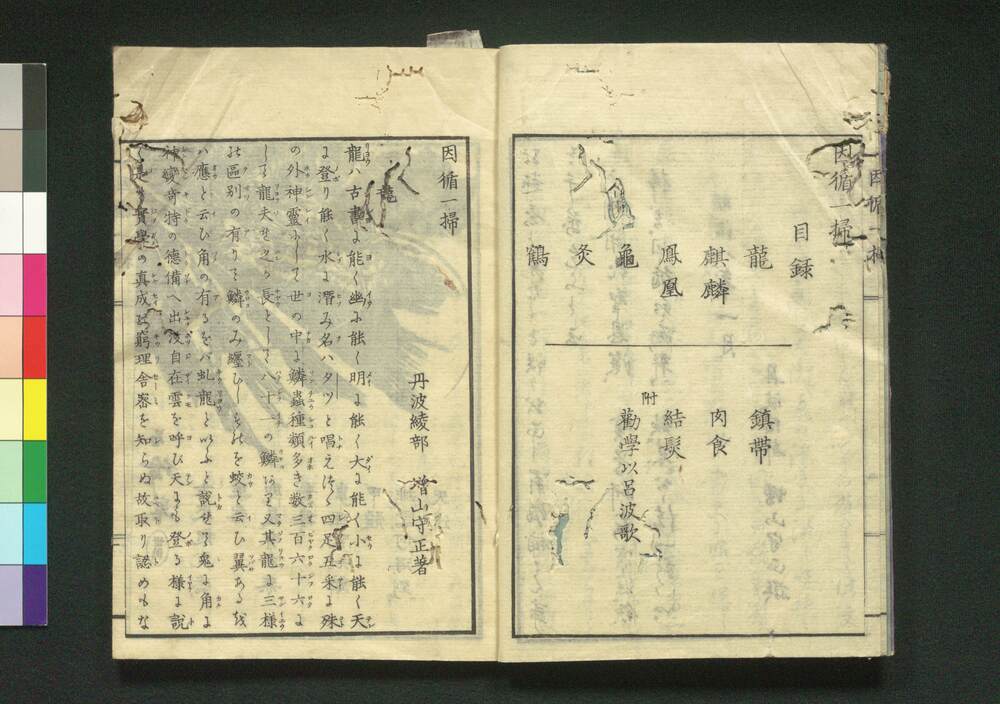 因循一掃
目録
龍
麒麟
鳳凰
龜
灸
鶴
鎮帯
肉食
結髪
附
勸學以呂波歌
因循一掃
丹波綾部 増山守正著
龍
龍ハ古書に能く幽に能く明に能く大に能く小に能く天
に登り能く水に潛み名ハタツと唱え
四足五采に殊
の外神靈にして世の中に鱗蟲種類多き数三百六十六に
して龍夫せ之が長として八十一の鱗
又其龍に三様
の區別の有りて鱗のみ纒ひしものを蛟と云ひ翼あるを
ハ應と云ひ角の有るをバ虬龍と
説せて兎に角に
神變奇特の徳備へ出没自在雲を呼び天にも登る様に説
實學の真成
窮理舎密を知らぬ故取り認めもな